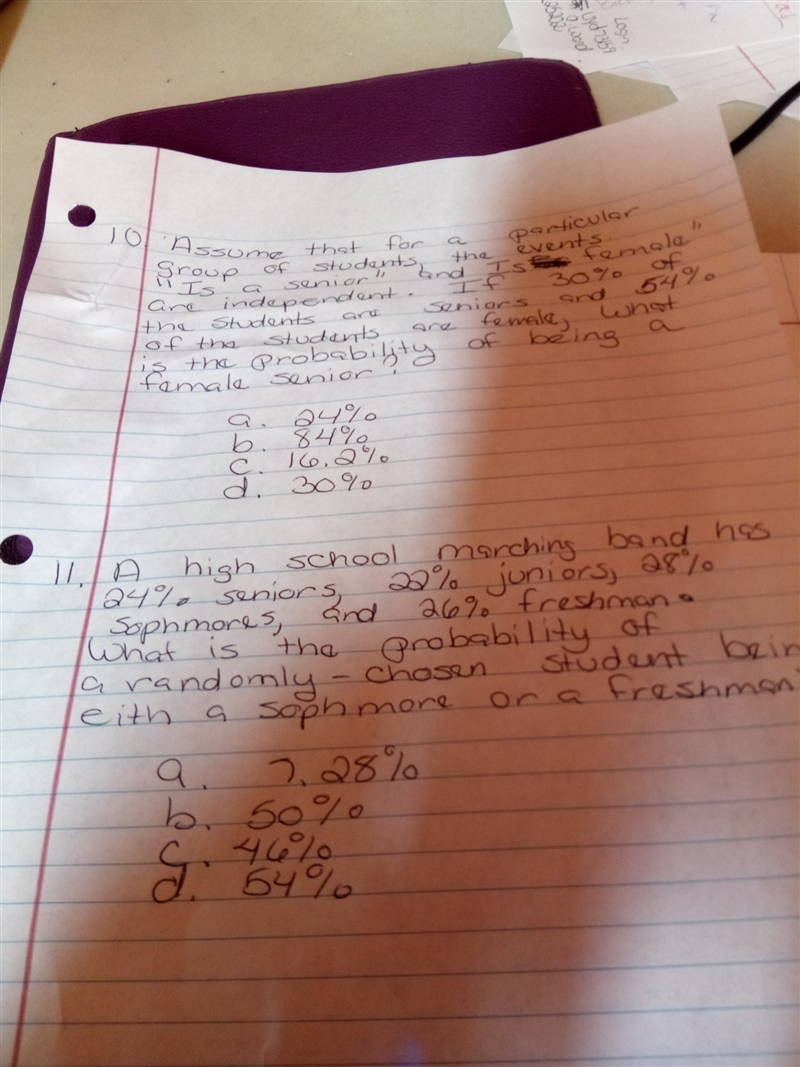 Login
Upd7869
Word
10. Assume that for a particular
group of students, the events
"Is a senior" and Is female"
are independent. If 30% of
the students are seniors and 54%
of the students are female, what
is the probability of being a
female senior?
a. 24%
b. 84%
c. 16.2%
d. 30%
11. A high school marching band has
24% seniors, 22% juniors, 28%
Sophmores, and 26% freshman.
What is the probability of
a randomly-chosen student bein
eith a sophmore or a freshman
a. 7.28%
b. 50%
c. 46%
d. 54%